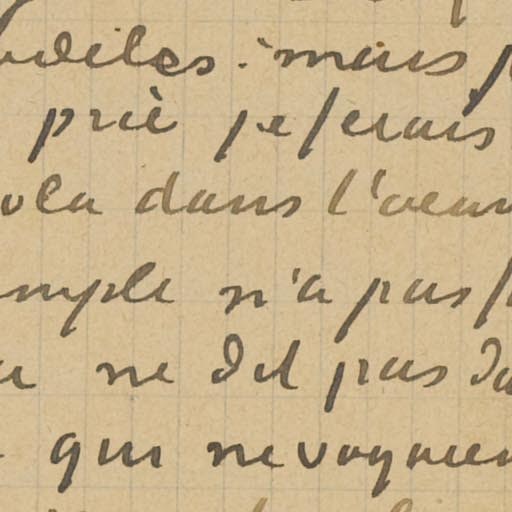 mais
prié je ferais
dans l'oeuv
mple n'a pas
ne dit pas
qui ne voyaien